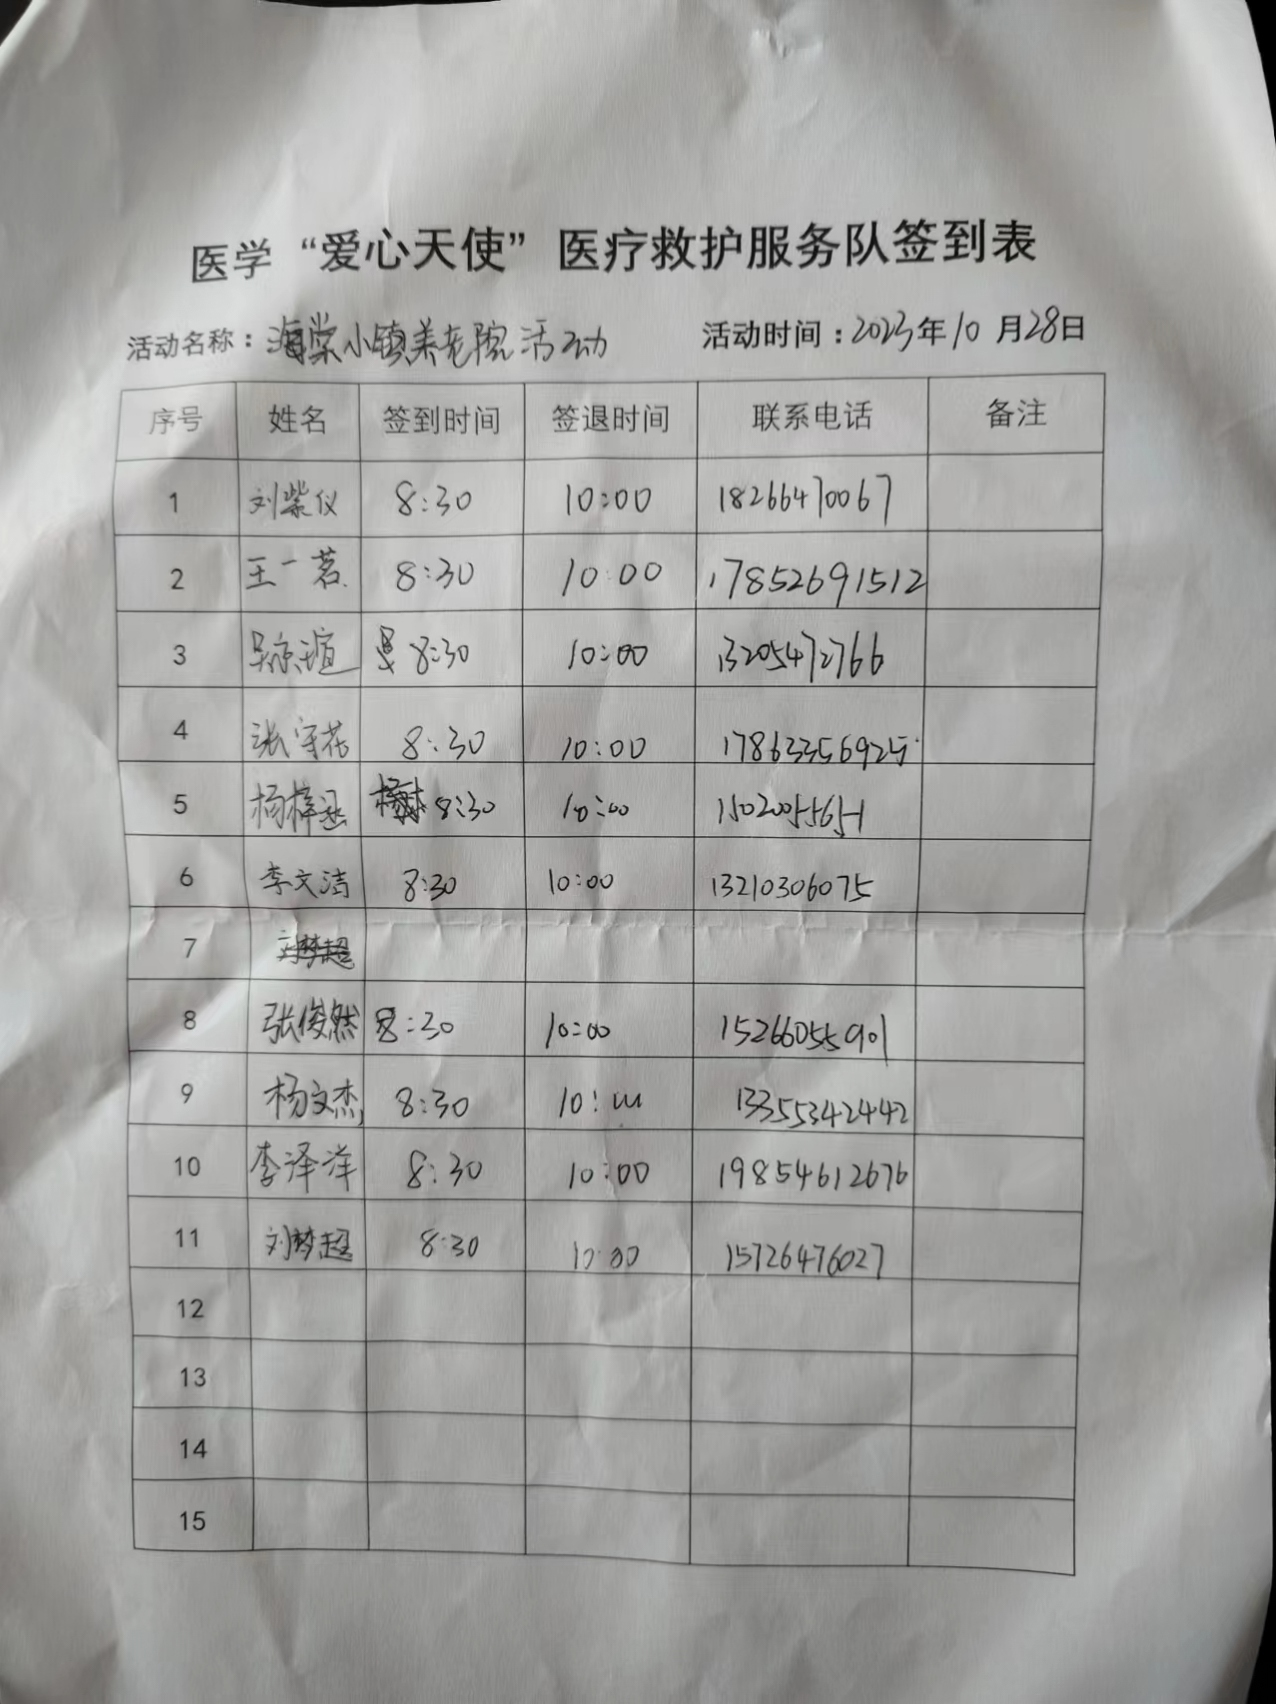 医学“爱心天使”医疗救护服务队签到表
活动名称：海棠小镇养老院活动 活动时间：2023年10月28日
序号 姓名 签到时间 签退时间 联系电话 备注
1 刘紫仪 8:30 10:00 18266470067
2 王一茗 8:30 10:00 17852691512
3 8:30 10:00 13205472766
4 张守花 8:30 10:00 17863356925
5 8:30 10:00 15020055651
6 李文洁 8:30 10:00 13210306075
7 刘梦超
8 张俊然 8:30 10:00 15266055901
9 杨文杰 8:30 10:00 13355342442
10 李泽洋 8:30 10:00 19854612676
11 刘梦超 8:30 10:00 15726476027
12
13
14
15